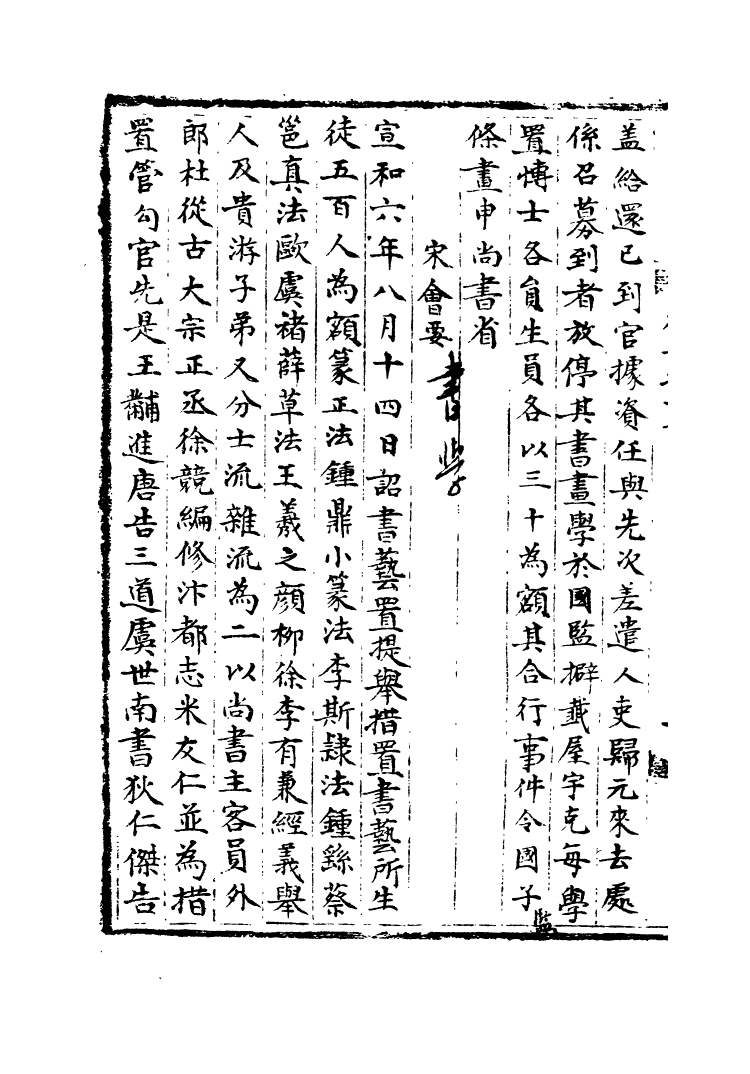 盖給還已到官據資任與先次差遣人吏歸元來去處
係召募到者放停其書畫學於國監擗截屋宇充每學
置博士各員生員各以三十為額其合行事件令國子監
條畫申尚書省
宋會要 書學
宣和六年八月十四日詔書藝置提舉措置書藝所生
徒五百人為額篆正法鍾鼎小篆法李斯隷法鍾繇蔡
邕真法歐虞褚薛草法王羲之顔柳徐李有兼經義舉
人及貴游子弟又分士流雜流為二以尚書主客員外
郎杜從古大宗正丞徐競編修汴都志米友仁並為措
置管勾官先是王黼進唐告三道虞世南書狄仁傑告